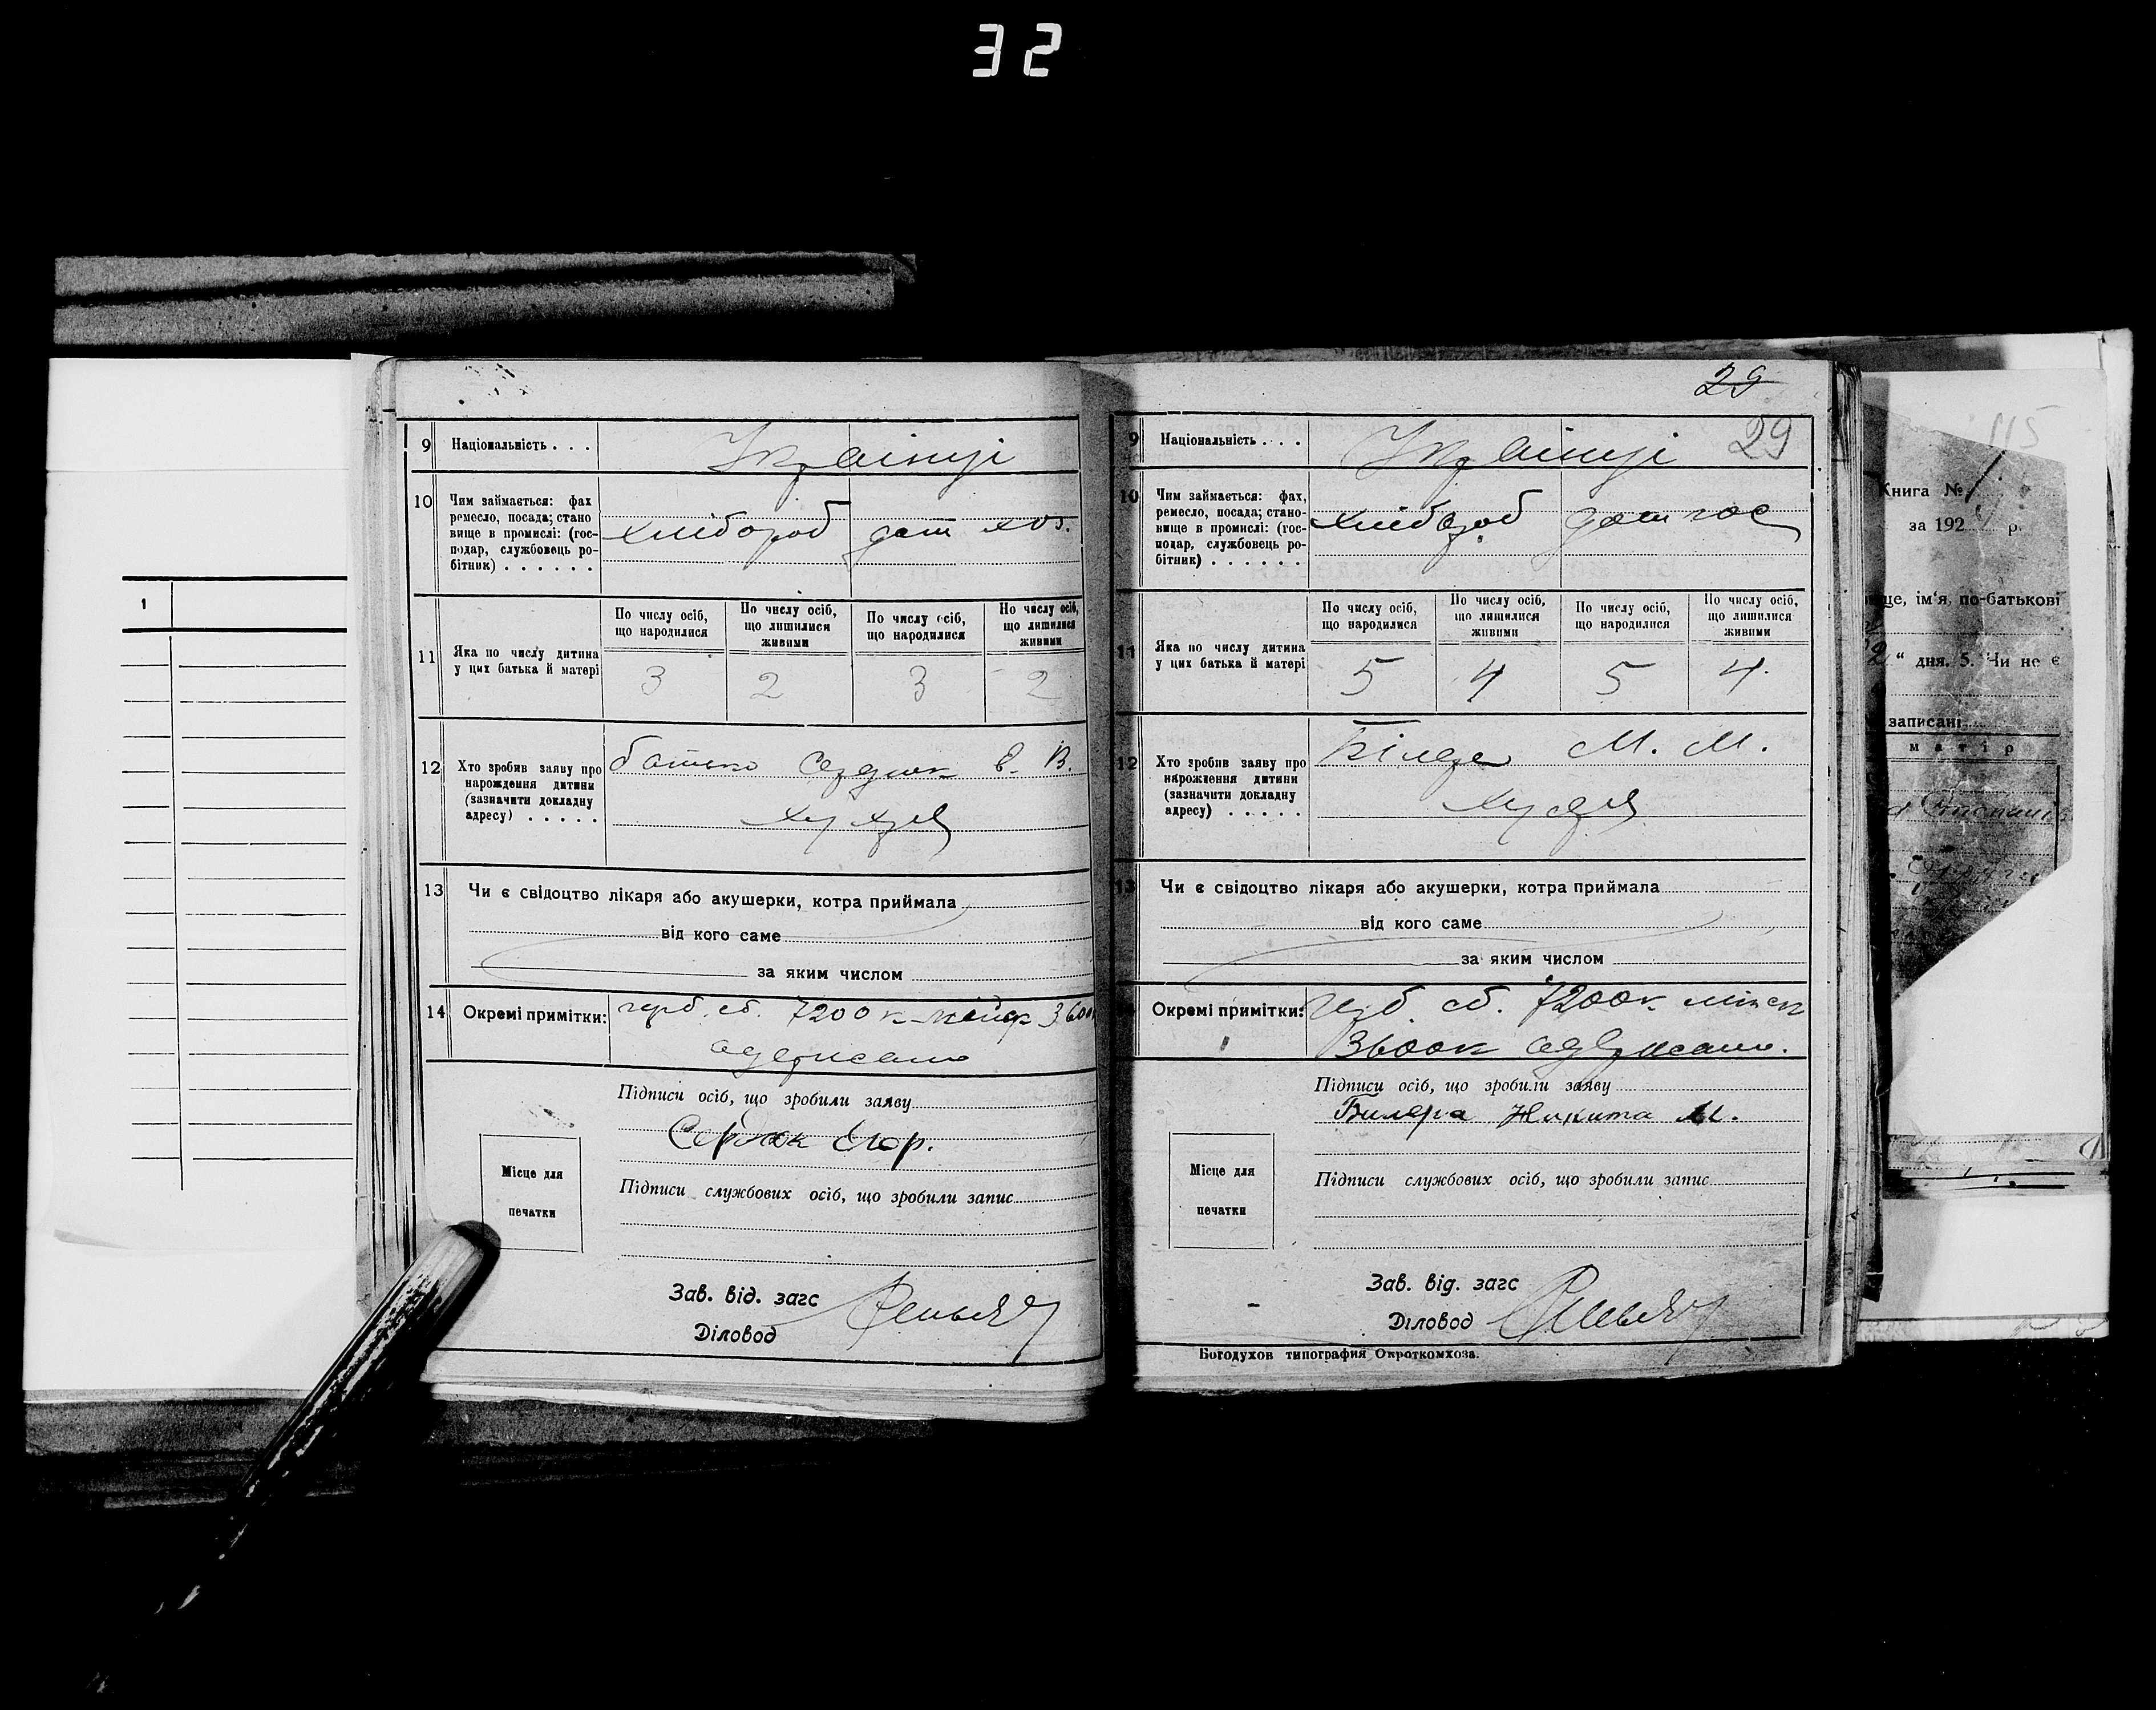 32
1
9 Національність . . . Українці
10 Чим займається: фах
ремесло, посада; стано
вище в промислі: (гос-
подар, службовець ро-
бітник) . . . . . .
хлібороб дом хоз.
11 Яка по числу дитина
у цих батька й матері
По числу осіб,
що народилися
По числу осіб,
що лишилися
живими
По числу осіб,
що народилися
По числу осіб,
що лишилися
живими
3 2 3 2
12 Хто зробив заяву про
нарождення дитини
(зазначити докладну
адресу) . . . . .
батько Сердюк Є. В.
13 Чи є свідоцтво лікаря або акушерки, котра приймала
від кого саме
за яким числом
14 Окремі примітки: герб. сб. 7200 к 3600
одержано
Підписи осіб, що зробили заяву
Сердюк Егор.
Місце для
печатки
Підписи службових осіб, що зробили запис
Зав. від. загс
Діловод
29
29
9 Національність . . . Українці
10 Чим займається: фах,
ремесло, посада; стано-
вище в промислі: (гос-
подар, службовець ро-
бітник) . . . . . .
хлібороб дом гос
11 Яка по числу дитина
у цих батька й матері
По числу осіб,
що народилися
По числу осіб,
що лишилися
живими
По числу осіб,
що народилися
По числу осіб,
що лишилися
живими
5 4 5 4.
12 Хто зробив заяву про
нарождення дитини
(зазначити докладну
адресу) . . . . .
Білера М. М.
13 Чи є свідоцтво лікаря або акушерки, котра приймала
від кого саме
за яким числом
Окремі примітки: герб. сб. 7200к
3600к одержано.
Підписи осіб, що зробили заяву
Билера Никита М.
Місце для
печатки
Підписи службових осіб, що зробили запис
Зав. від. загс
Діловод
Богодухов типография Окроткомхоза.
115
Книга №
за 192 р.
ще, ім'я, по-батькові
2 " дня. 5. Чи не є
записані
матір